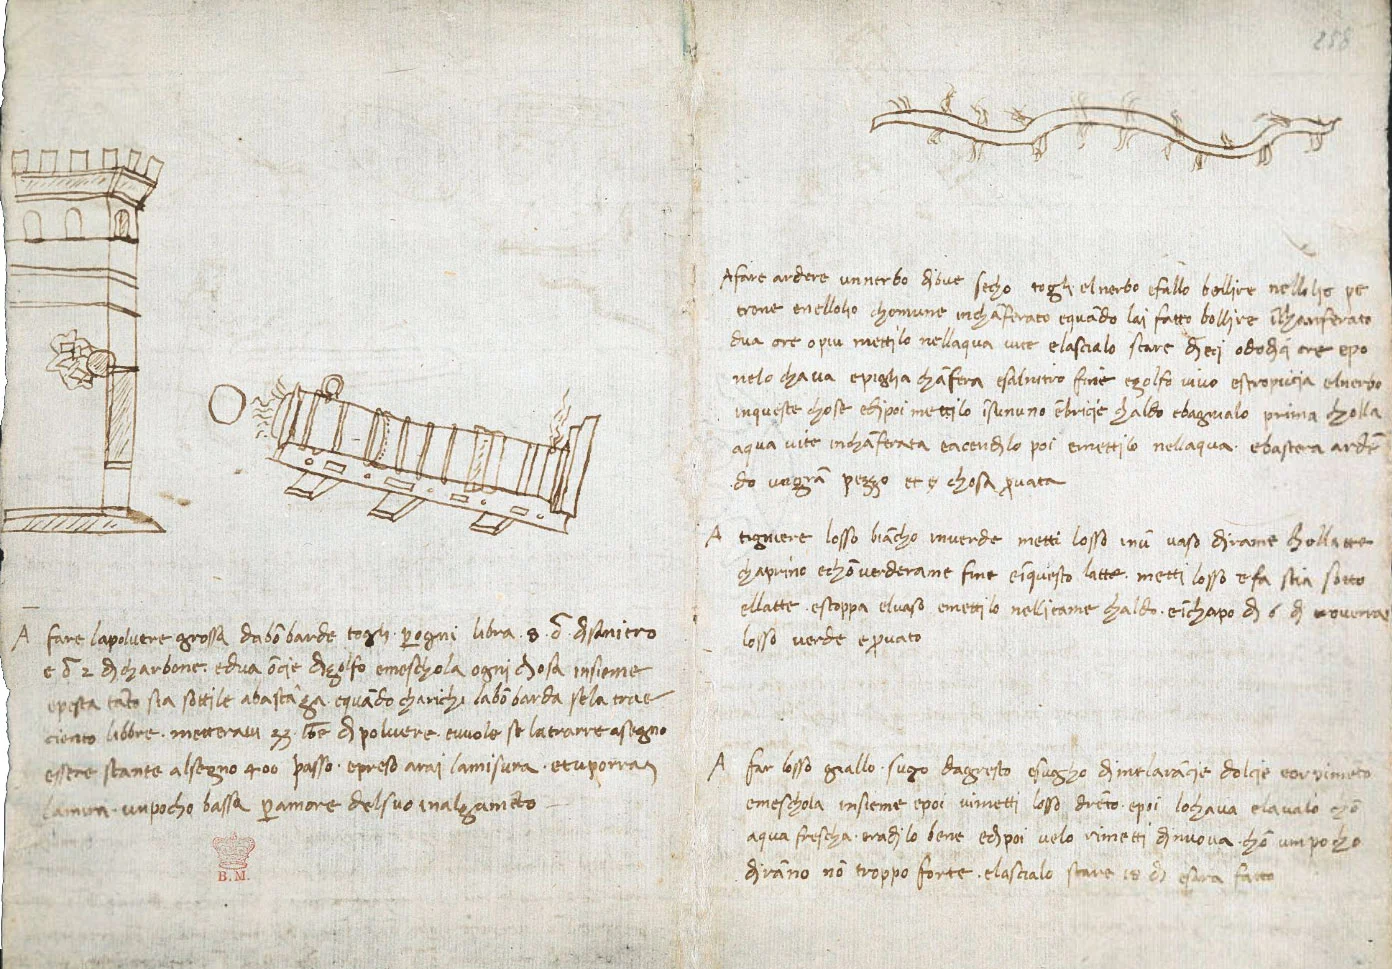 A fare la polvere grossa da bōbarde togli · per ogni libra · 8 · ō · di saniero
e ō 2 di charbone · e dua ōcie di zolfo e meschola ogni chosa insieme
e pesta tāto sia sottile abastāza · e quādo charichi la bōbarda se la trae
ciento libbre · metteravi 33 · lbre di polvere · e vuole se la trarre a segno
essere stante al segno 400 passo · e preso arai la misura · et tu porrai
la mira · un pocho bassa per amore del suo inalzamēto
B. M.
258
A fare ardere un nerbo di bue secho togli el nerbo e fallo bollire nell olio pe
trone e nello lio chomune inchāferato e quādo lai fatto bollire
dua ore o piu mettilo nell aqua vite e lascialo stare dieci o dodici ore e po
nelo chava e piglia chāfera e salnitro fine e zolfo vivo e stropicia el nerbo
in queste chose e di poi mettilo īsun uno ēbricie chaldo e bagnialo prima cholla
aqua vite inchāferata e acendilo poi e mettilo nell aqua · e bastera ardē
do un grā pezzo et e chosa provata
A tigniere losso biācho in verde metti losso inū vaso di rame chollatte
chaprino e chō verderame fine e ī questo latte · metti losso e fa stia sotto
el latte · e stoppa el vaso e mettilo nel litame chaldo · e ī chapo di 6 di troverrai
losso verde e provato
A far losso giallo · sugo dagresto e sugho di melarācie dolcie e orpimēto
e meschola insieme e poi vi metti losso drēto · e poi lo chava e lavalo chō
aqua frescha · e radilo bene e di poi velo rimetti di nuova · chō un pocho
di rāno nō troppo forte · e lascialo stare 18 di e sara fatto